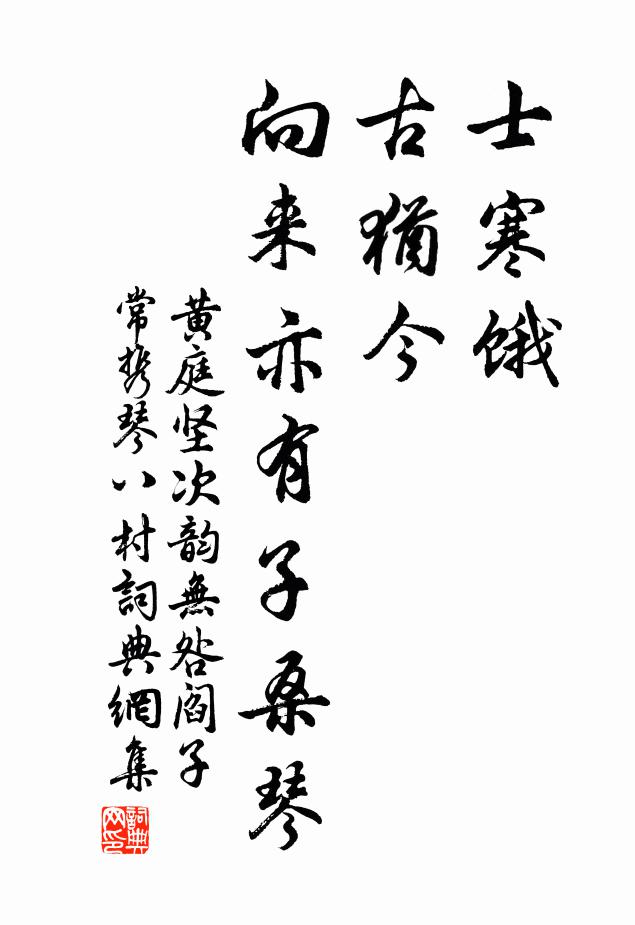 士寒饿
古猶今
向来亦有子桑琴
黄庭坚次韵無咎阎子
常携琴入村詞典網集
詞典
网印